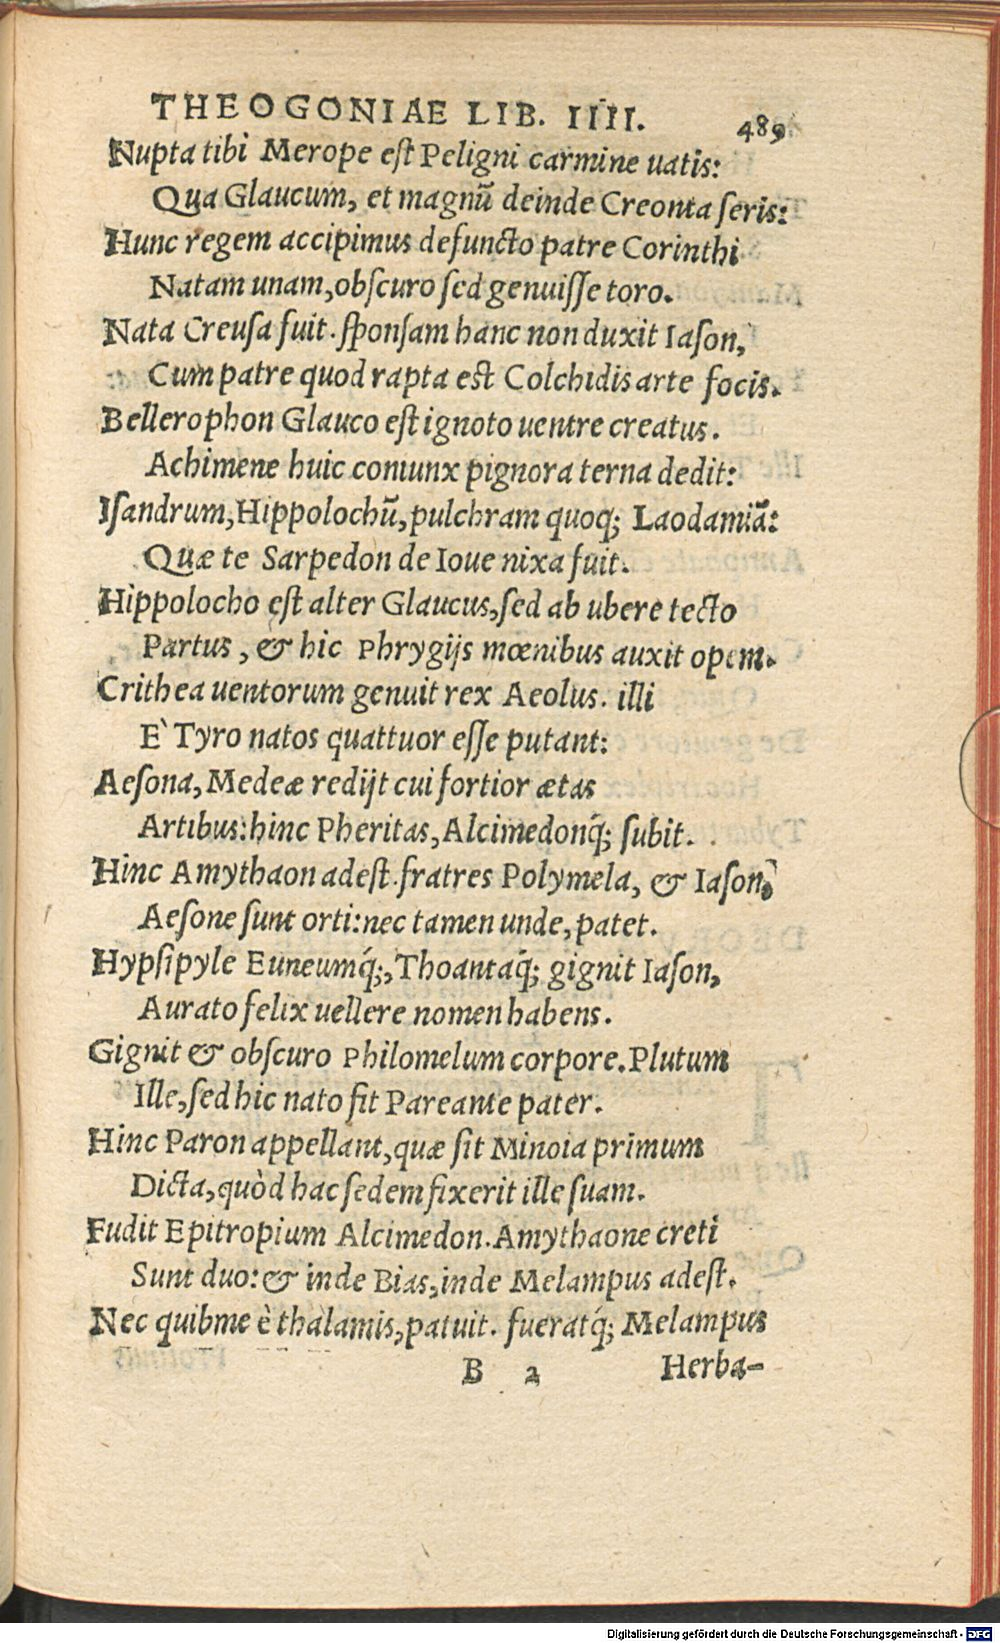 THEOGONIAE LIB. IIII. 489
Nupta tibi Merope est Peligni carmine uatis:
Qua Glaucum, et magnũ deinde Creonta seris:
Hunc regem accipimus defuncto patre Corinthi
Natam unam, obscuro sed genuisse toro.
Nata Creusa fuit. sponsam hanc non duxit Iason,
Cum patre quod rapta est Colchidis arte focis.
Bellerophon Glauco est ignoto uentre creatus.
Achimene huic coniunx pignora terna dedit:
Isandrum, Hippolochũ, pulchram quoq; Laodamiã:
Quæ te Sarpedon de Ioue nixa fuit.
Hippolocho est alter Glaucus, sed ab ubere tecto
Partus, & hic Phrygijs mœnibus auxit opem.
Crithea uentorum genuit rex Aeolus. illi
E` Tyro natos quattuor esse putant:
Aesona, Medeæ redijt cui fortior ætas
Artibus: hinc Pheritas, Alcimedonq́; subit.
Hinc Amythaon adest. fratres Polymela, & Iason,
Aesone sunt orti: nec tamen unde, patet.
Hypsipyle Euneumq́;, Thoantaq́; gignit Iason,
Aurato felix uellere nomen habens.
Gignit & obscuro Philomelum corpore. Plutum
Ille, sed hic nato fit Pareante pater.
Hinc Paron appellant, quæ sit Minoia primum
Dicta, quòd hac sedem fixerit ille suam.
Fudit Epitropium Alcimedon. Amythaone creti
Sunt duo: & inde Bias, inde Melampus adest.
Nec quibme è thalamis, patuit. fueratq́; Melampus
B 2 Herba-
Digitalisierung gefördert durch die Deutsche Forschungsgemeinschaft - DFG